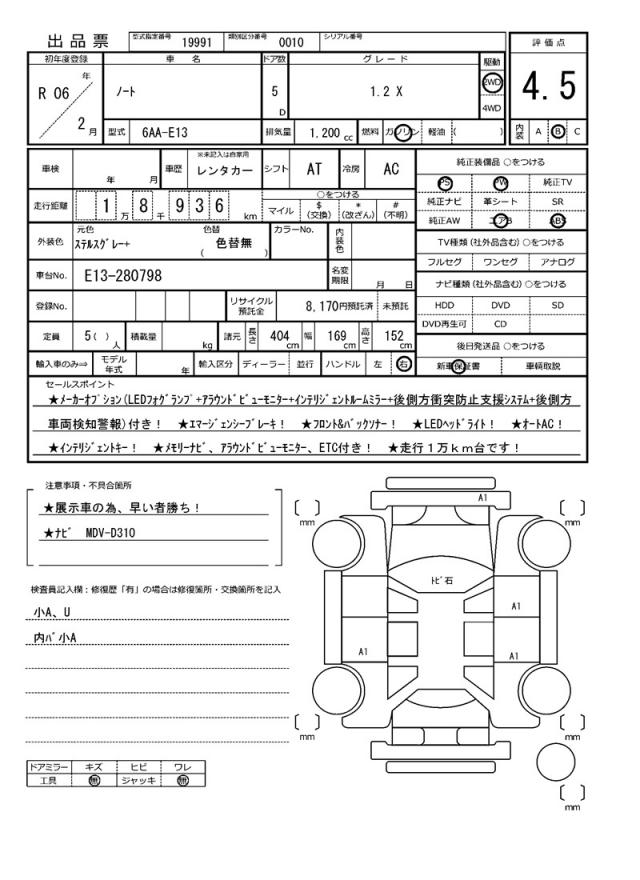 出品票 型式指定番号 19991 類別区分番号 0010 シリアル番号
評価点
4.5
内装 A B C
初年度登録 車名 ドア数 グレード 駆動
R 06 年 2 月 ノート 5 D 1.2 X 2WD 4WD
型式 6AA-E13 排気量 1.200 cc 燃料 ガソリン 軽油 ( )
車検 年 月 車歴 ※未記入は自家用 レンタカー シフト AT 冷房 AC
走行距離 1 万 8 千 9 3 6 km ○をつける マイル $ (交換) * (改ざん) # (不明)
外装色 元色 ステルスグレー+ 色替 ( 色替無 ) カラーNo. 内装色
車台No. E13-280798 名変期限 月 日
登録No. リサイクル預託金 8,170円預託済 未預託
定員 5( )人 積載量 kg 諸元 長さ 404 cm 幅 169 cm 高さ 152 cm
輸入車のみ⇒ モデル年式 年 輸入区分 ディーラー 並行 ハンドル 左 右
純正装備品 ○をつける
PS PW 純正TV
純正ナビ 革シート SR
純正AW エアB ABS
TV種類(社外品含む)○をつける
フルセグ ワンセグ アナログ
ナビ種類(社外品含む)○をつける
HDD DVD SD
DVD再生可 CD
後日発送品 ○をつける
新車保証書 車輌取説
セールスポイント
★メーカーオプション(LEDフォグランプ+アラウンドビューモニター+インテリジェントルームミラー+後側方衝突防止支援システム+後側方
車両検知警報)付き! ★エマージェンシーブレーキ! ★フロント&バックソナー! ★LEDヘッドライト! ★オートAC!
★インテリジェントキー! ★メモリーナビ、アラウンドビューモニター、ETC付き! ★走行1万km台です!
注意事項・不具合箇所
★展示車の為、早い者勝ち!
★ナビ MDV-D310
検査員記入欄:修復歴「有」の場合は修復箇所・交換箇所を記入
小A、U
内バ小A
ドアミラー キズ ヒビ ワレ
工具 無 ジャッキ 無
A1
トビ石
A1
A1
A1
[ ] mm
[ ] mm
[ ] mm
[ ] mm
[ ] mm